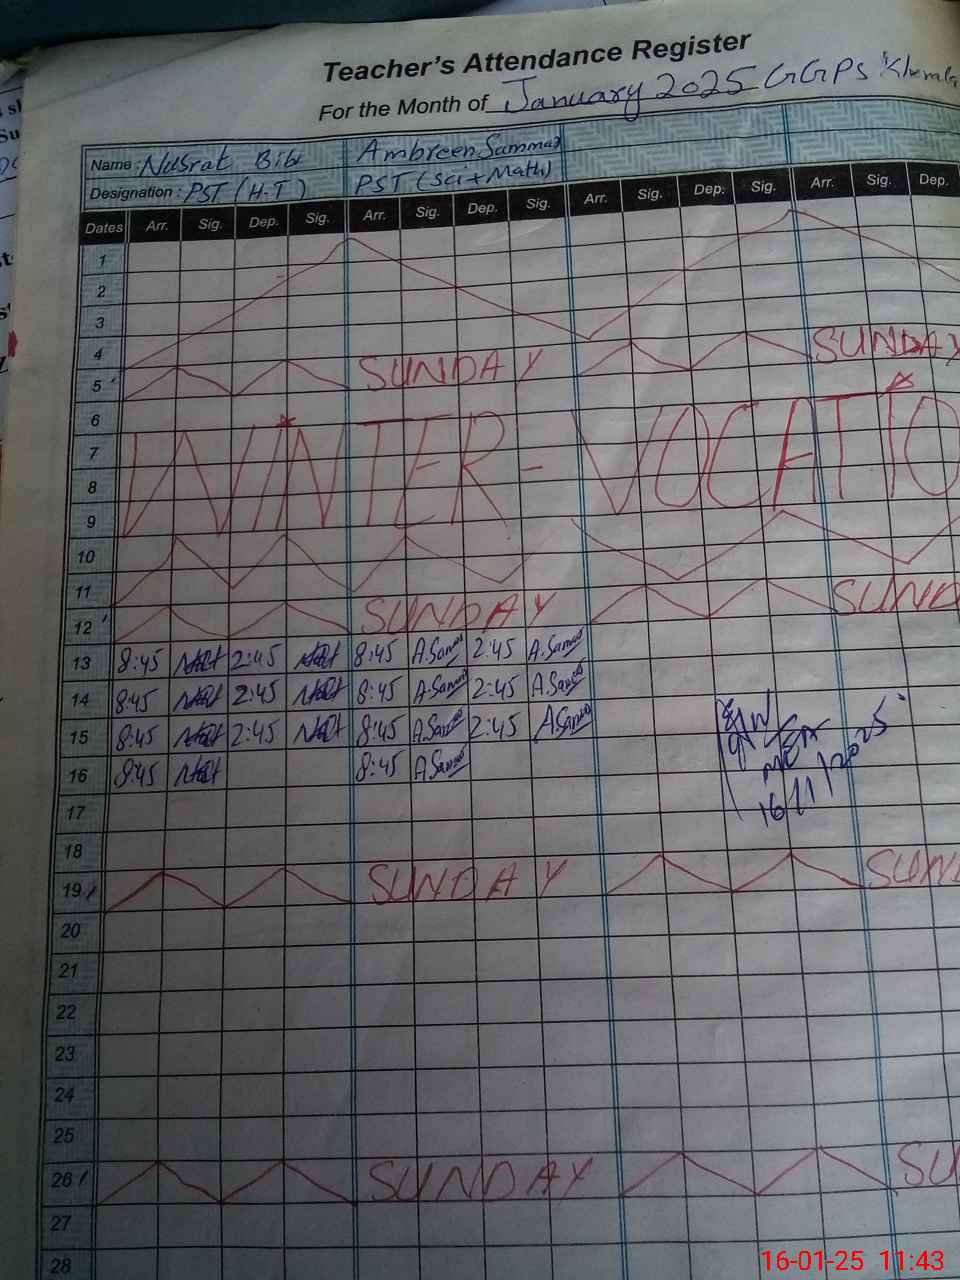 Teacher's Attendance Register
For the Month of January 2025 GGPS
Name: Nusrat Bibi Ambreen Sammad
Designation: PST (H.T) PST (Sci+Math)
Dates Arr. Sig. Dep. Sig. Arr. Sig. Dep. Sig. Arr. Sig. Dep. Sig. Arr. Sig. Dep.
1
2
3
4
5 SUNDAY SUNDAY
6
7 WINTER - VOCATIO
8
9
10
11
12 SUNDAY SUND
13 8:45 2:45 8:45 A.Samad 2:45 A.Samad
14 8:45 2:45 8:45 A.Samad 2:45 A.Samad
15 8:45 2:45 8:45 A.Samad 2:45 A.Samad
16 8:45 8:45 A.Samad
MEA
16/1/2025
17
18
19 SUNDAY SUN
20
21
22
23
24
25
26 SUNDAY SU
27
28
16-01-25 11:43